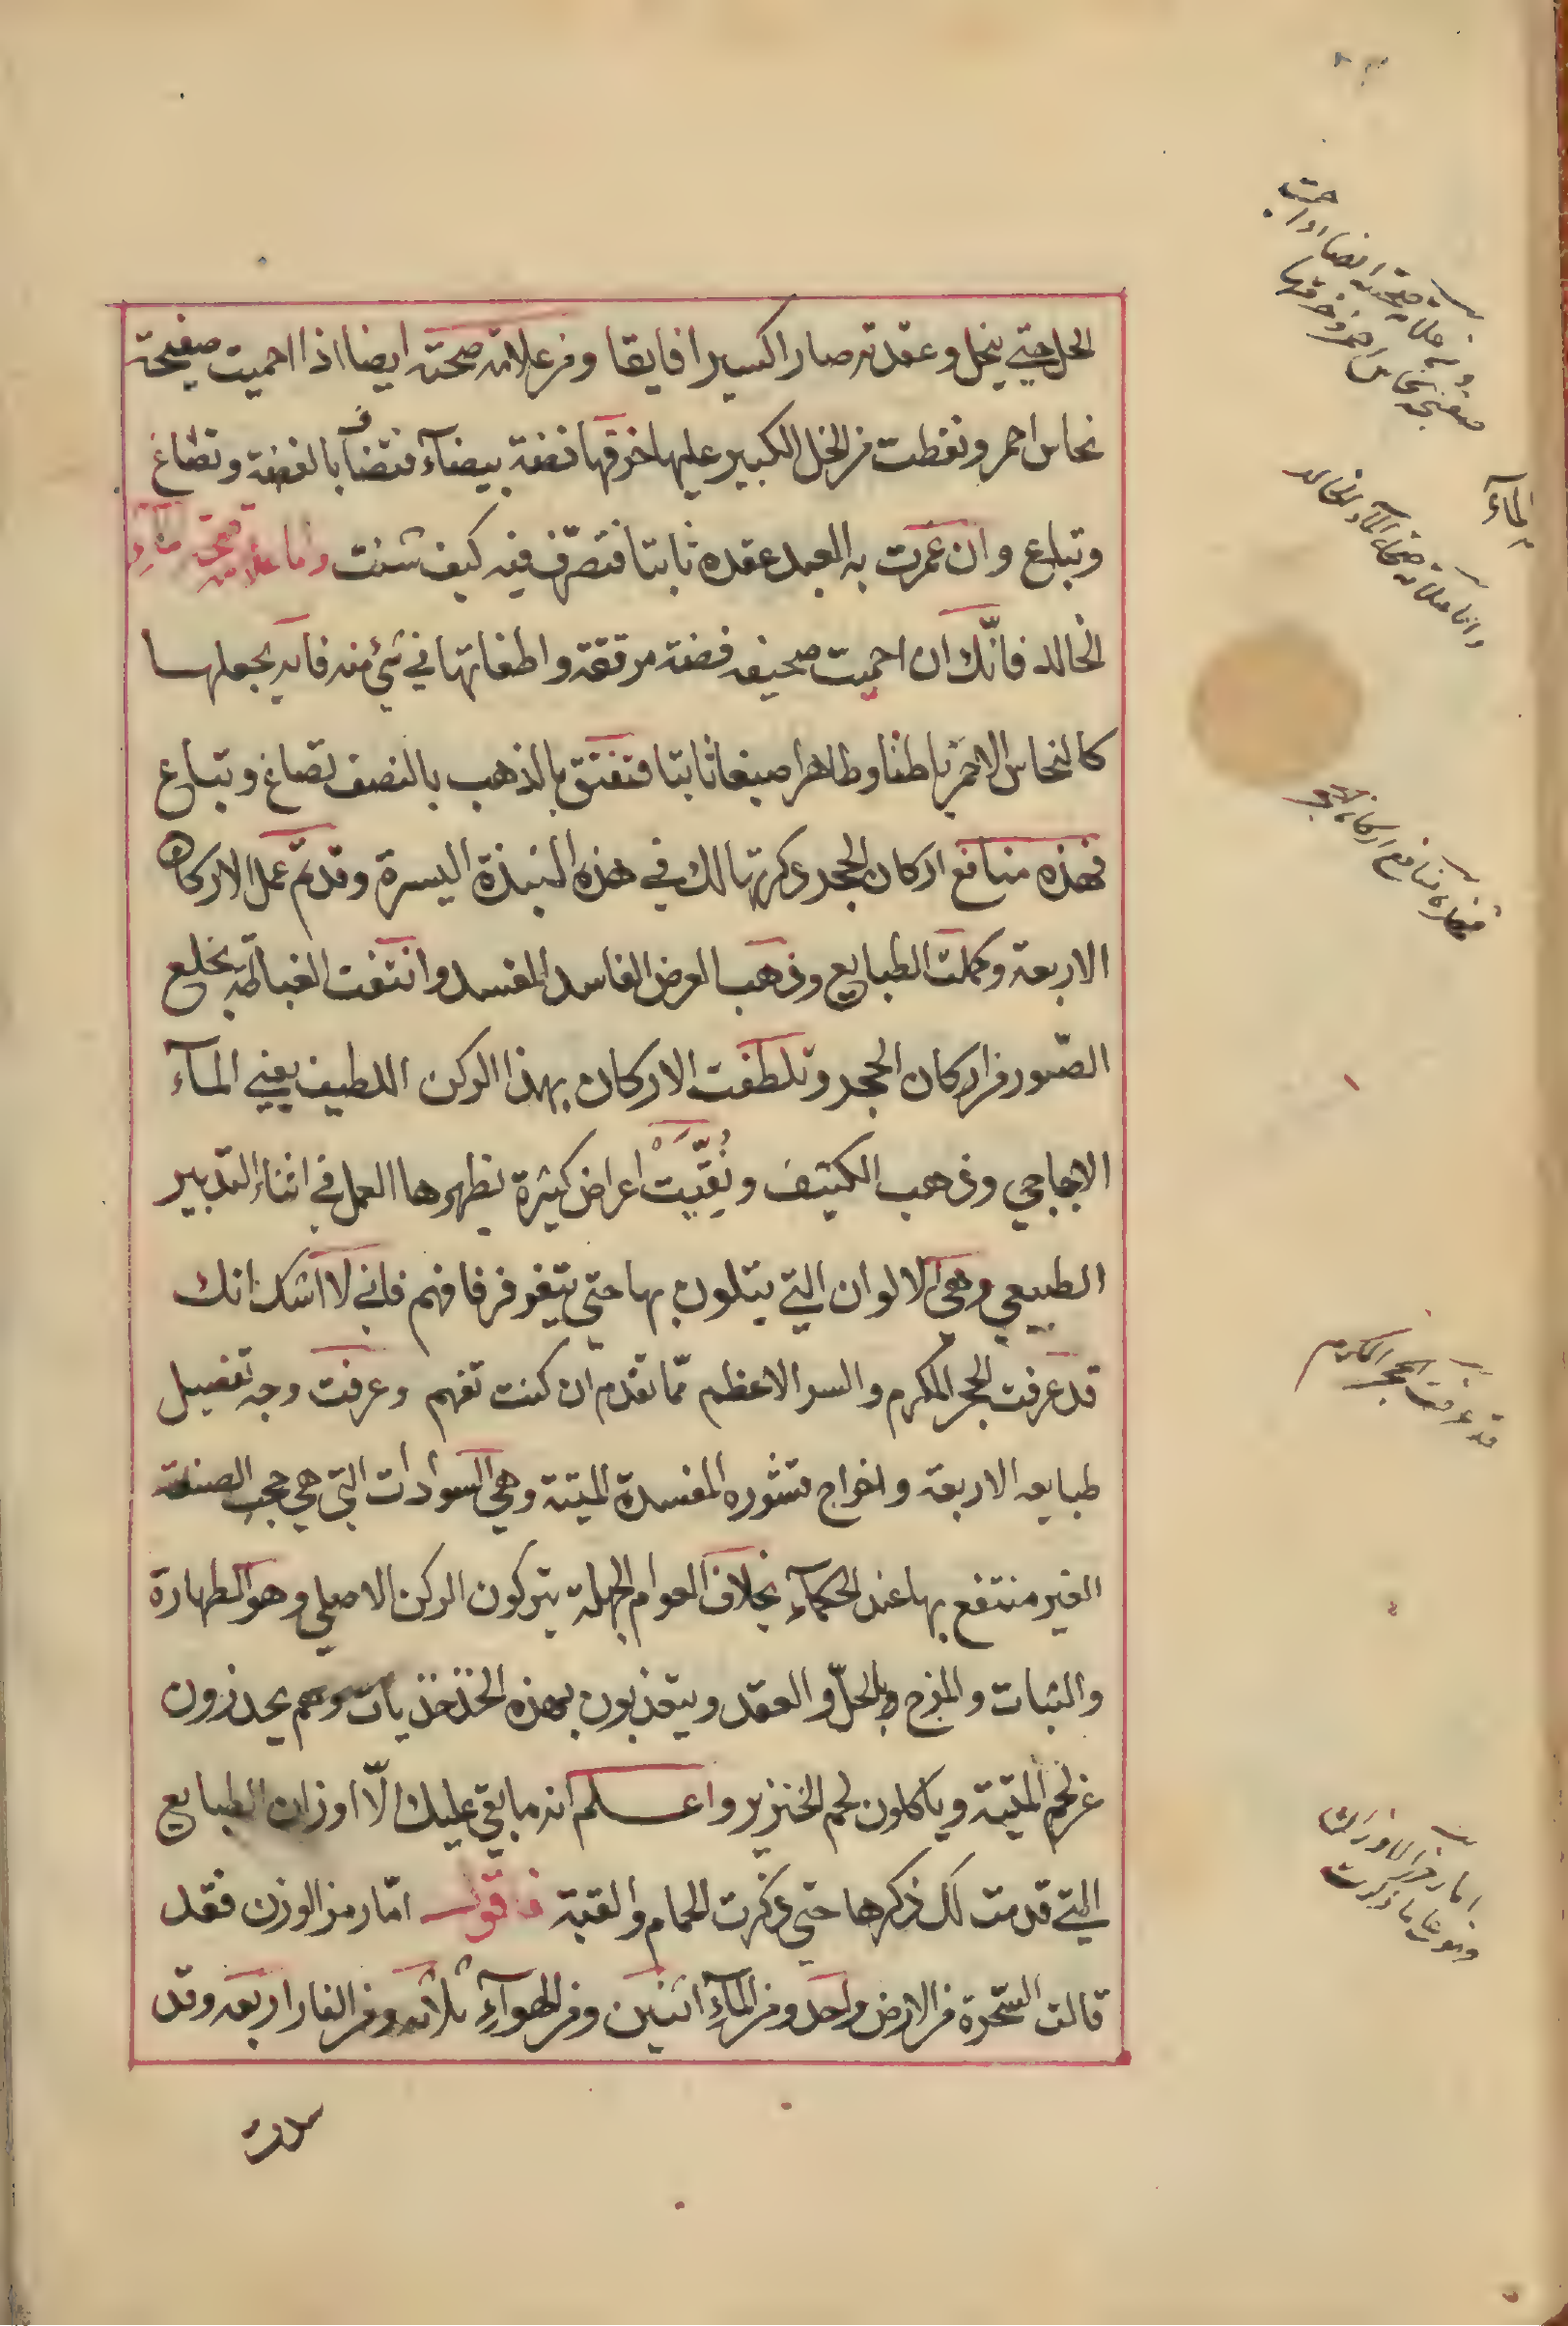 الحل حتى ينحل وعقدته صار اكسيرا فايقا ومن علامة صحته ايضا اذا احميت صفيحة
نحاس احمر ونقطت من الخل الكبير عليها خرقها فضة بيضآء فتضاف بالفضة وتصاغ
وتباع وان غمرت به العبد عقده ثابتا فتصرّف فيه كيف شئت واما علامة صحة مآء
الخالد فانّك ان احميت صحيفه فضة مرققة واطفاتها في شئ منه فانه يجعلها
كالنحاس الاحمر باطنا وظاهرا صبغا ثابتا فتفتق بالذهب بالنصف تصاغ وتباع
فهذه منافع اركان الحجر ذكرتها لك في هذه النبذة اليسرة وقد تم عمل الاركان
الاربعة وكملت الطبايع وذهب العرض الفاسد المفسد وانتفت الغباطه بخلع
الصّور من اركان الحجر وتلطفت الاركان بهذا الركن اللطيف يعني المآء
الاجاجي وذهب الكثيف ونُقّيت اعراض كثيرة يظهرها العمل في اثناء التدبير
الطبيعي وهى الالوان التي يتلون بها حتى يتفرفر فافهم فاني لا اشك انك
قد عرفت الحجر المكرم والسر الاعظم ممّا تقدم ان كنت تفهم وعرفت وجه تفصيل
طبايعه الاربعة واخراج قشوره المفسدة الميتة وهي السوادات التي هي حجب الصنعة
الغير منتفع بها عند الحكمآء بخلاف العوام الجهلة يتركون الركن الاصلي وهو الطهارة
والثبات والمزج والحلّ والعقد ويتعذبون بهذه الخذخذيات وهم يحذرون
عن لحم الميتة وياكلون لحم الخنزير واعلم انه ما بقي عليك الّا اوزان الطبايع
التي قدمت لك ذكرها حتى ذكرت الحمام والقبة فاقول امّا رمز الوزن فقد
قالت السّحرة من الارض واحد ومن المآء اثنين ومن الهوآء ثلاثه ومن النار اربعه وقد
ومن علامة صحته ايضا اذا احميت
صفيحة نحاس احمر وخرقها
المآء
واما علامة صحة المآء الخالد
فهذه منافع اركان الحجر
قد عرفت الحجر المكرم
اما رمز الاوزان